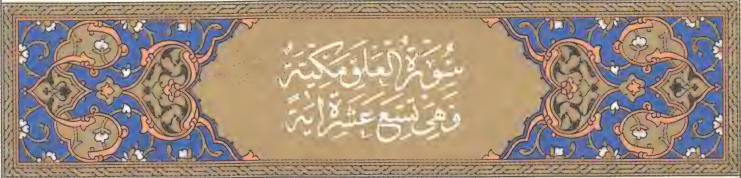 سُورَةُ الْعَلَقِ مَكِّيَّةٌ
وَهِيَ تِسْعَ عَشْرَةَ آيَةً